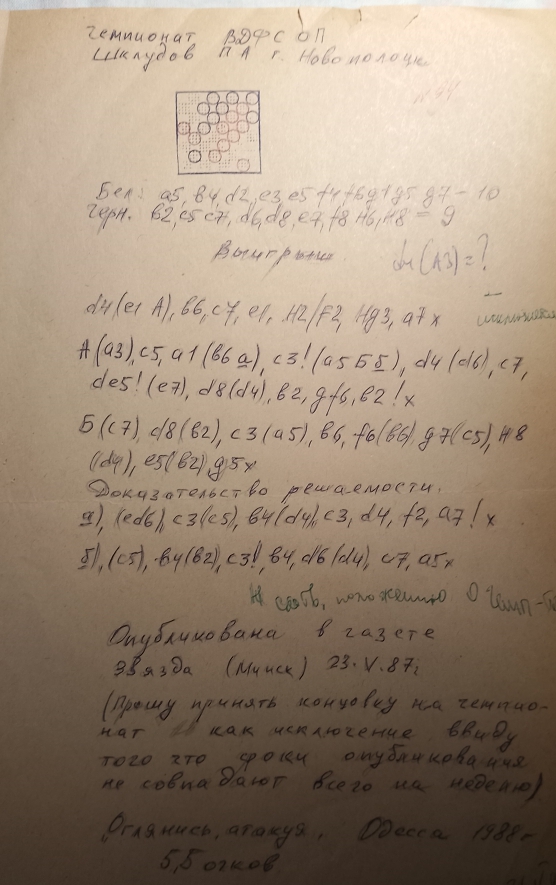 Чемпионат ВДФС ОП
Шклудов П А г. Новополоцк
Бел: а5, в4, d2, е3, е5 f4 f6 g1 g5 g7 – 10
Черн. в2, с5 с7, d6, d8, е7, f8 h6, h8 = 9
Выигрыш
(А3) = ?
d4 (е1 А), в6, с7, е1, H2/F2, Hg3, а7 х
А (а3), с5, а1 (в6 а), с3! (а5 Б б), d4 (d6), с7,
de5! (е7), d8 (d4), в2, gf6, в2! х
Б (с7), d8 (в2), с3 (а5), в6, f6 (в6), g7 (с5), H8
(d4), е5 (в2), g5х
Доказательство решаемости.
а), (ed6), с3 (с5), в4 (d4), с3, d4, f2, а7! х
б), (с5), в4 (в2), с3!, в4, d6 (d4), с7, а5х
положению О Чемп-
Опубликована в газете
Звязда (Минск) 23.V.87г
(Прошу принять концовку на чемпио-
нат как исключение ввиду
того что сроки опубликования
не совпадают всего на неделю)
Оглянись, атакуя. Одесса 1988г
5,5 очков